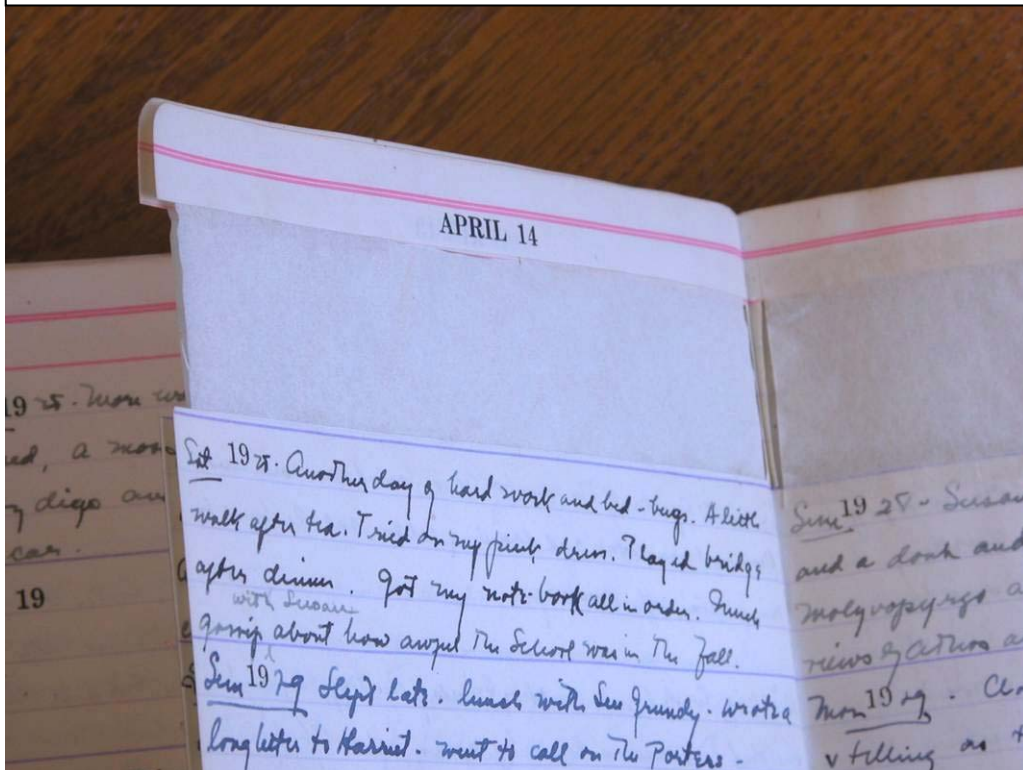 APRIL 14
Sat 1928. Another day of hard work and bed-bugs. A little
walk after tea. Tried on my pink dress. Played bridge
after dinner. Got my note-book all in order. Much
with Susan
gossip about how awful the School was in the Fall.
Sun 1929 Slept late. lunch with Sue Grundy. wrote a
long letter to Harriet. went to call on the Porters -
19 28. More
ed, a
digo
car.
19
Sun 19 28 - Susan
and a donk and
views of Athos
Mon 19 29. 
telling